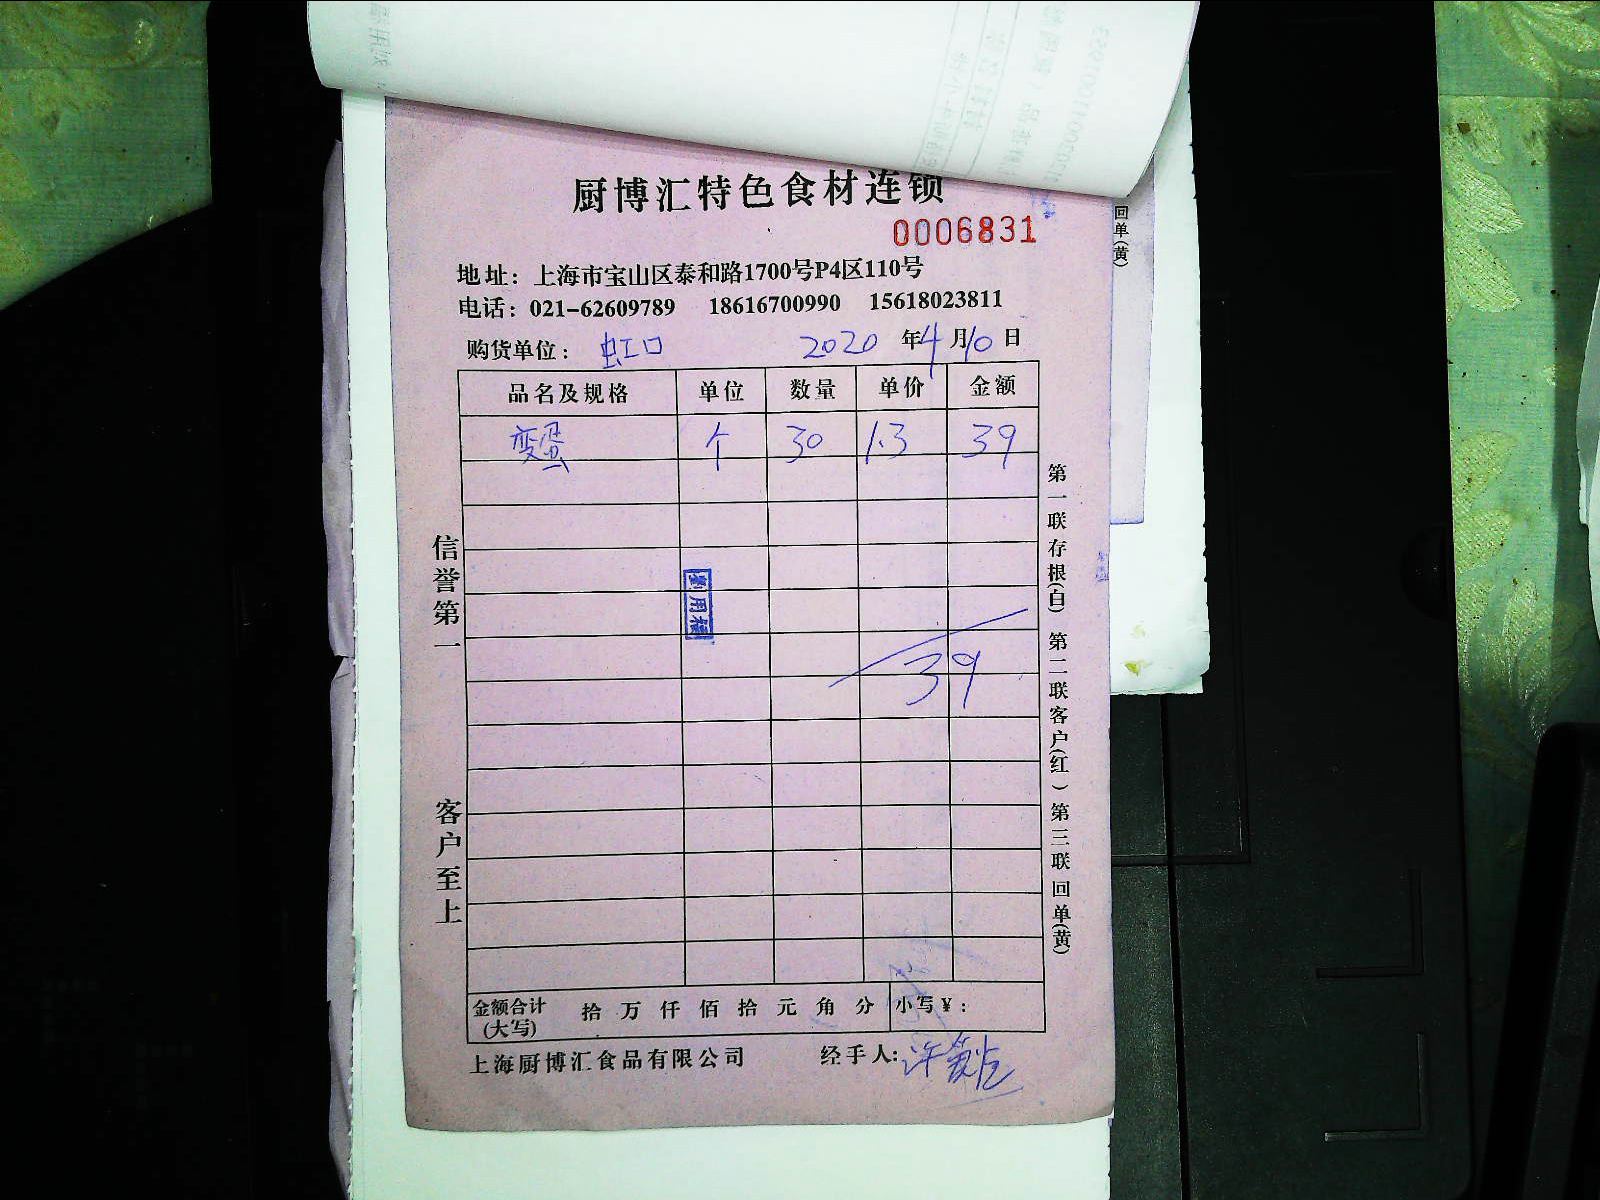 厨博汇特色食材连锁
0006831
地址：上海市宝山区泰和路1700号P4区110号
电话：021-62609789 18616700990 15618023811
购货单位：虹口 2020年4月10日
品名及规格 单位 数量 单价 金额
变蛋 个 30 1.3 39
39
信誉第一
客户至上
第一联存根(白) 第二联客户(红) 第三联回单(黄)
回单(黄)
金额合计(大写) 拾 万 仟 佰 拾 元 角 分 小写￥：
上海厨博汇食品有限公司 经手人: 许